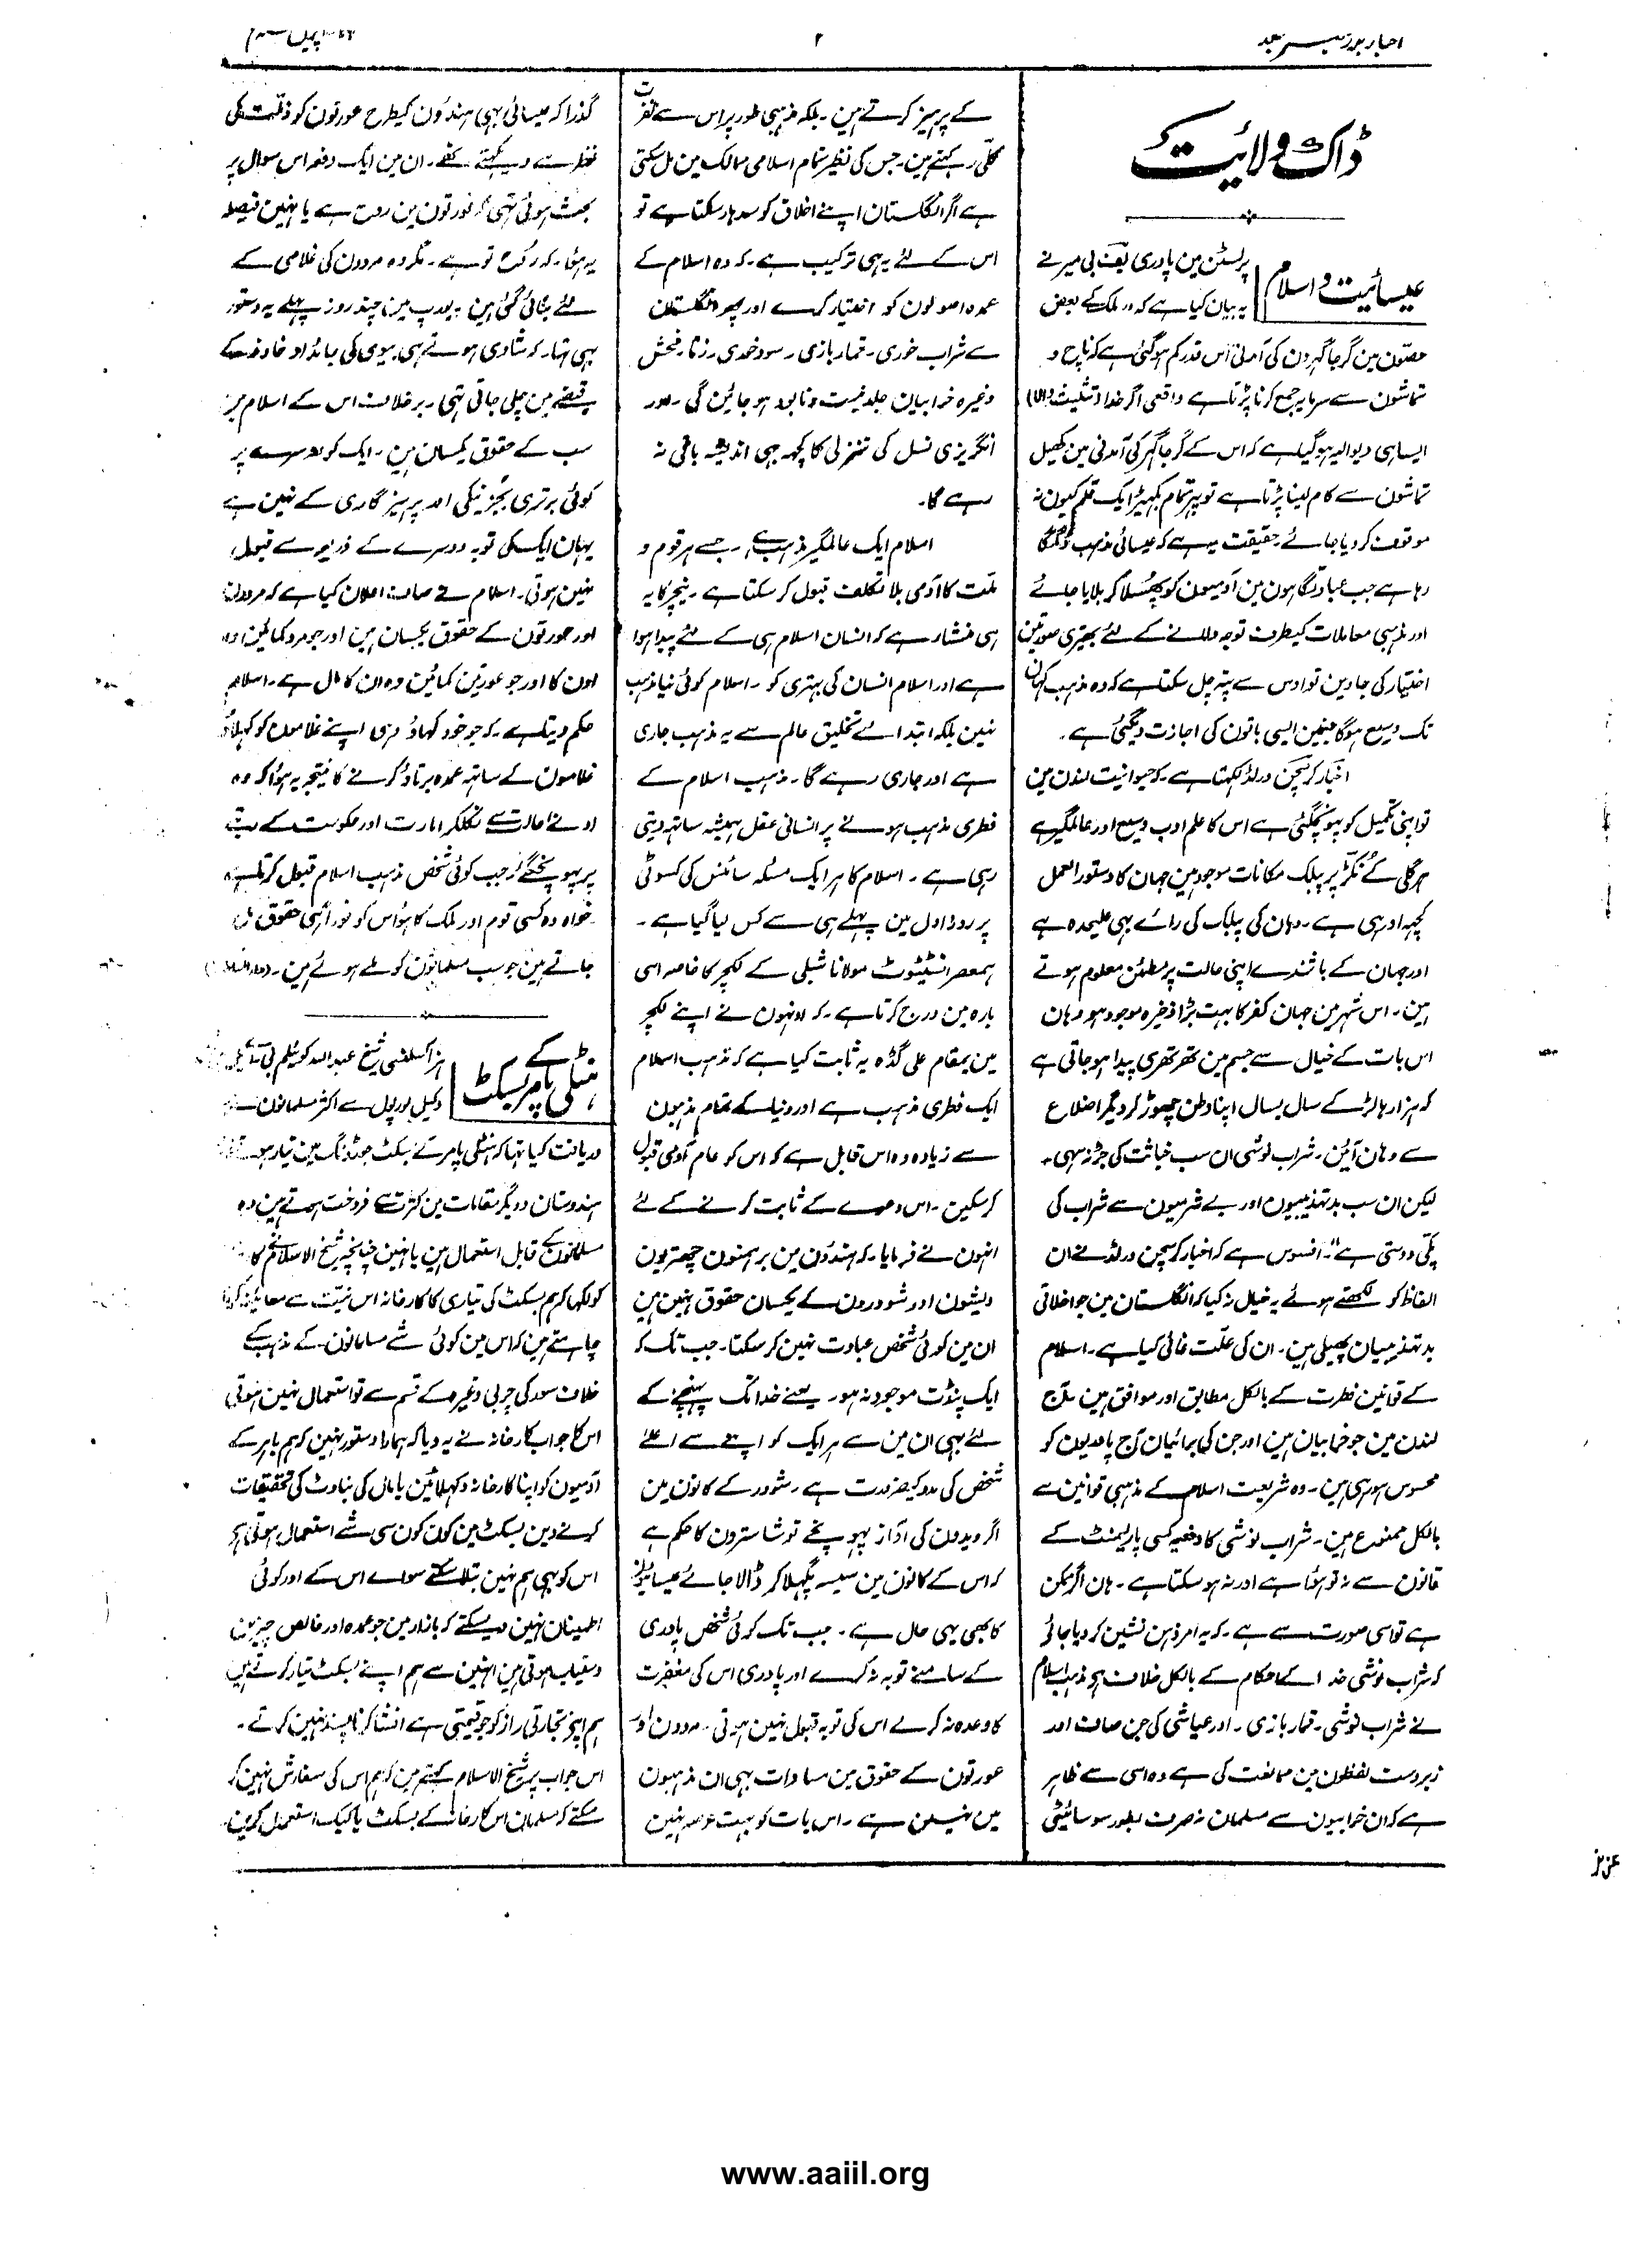 ۲
ڈاک ولائیت
عیسائیت و اسلام
پرسٹن مین پادری ایف بی میر نے
یہ بیان کیا ہے کہ ملک کے بعض
حصّون مین گرجا گہرون کی آمدنی اس قدر کم ہوگئی ہے کہ ناچ و
تماشون سے سرمایہ جمع کرنا پڑتا ہے واقعی اگر خداء تثلیث
ایسا ہی دیوالیہ ہوگیا ہے کہ اس کے گرجا گہر کی آمدنی مین کھیل
تماشون سے کام لینا پڑتا ہے تو پہر تمام بکہیڑا ایک قلم کیون نہ
موقوف کر دیا جائے حقیقت یہ ہے کہ عیسائی مذہب
رہا ہے جب عبادتگاہون مین آدمیون کو پھسلا کر بلایا جائے
اور مذہبی معاملات کیطرف توجہ دلانے کے لئے بہتری صورتین
اختیار کی جاوین تو اوس سے پتہ چل سکتا ہے کہ وہ مذہب کہان
تک وسیع ہوگا جنمین ایسی باتون کی اجازت دیگئی ہے۔
اخبار کرسچن ورلڈ لکہتا ہے۔ کہ حیوانیت لندن مین
تو اپنی تکمیل کو پہونچگئی ہے اس کا علم ادب وسیع اور عالمگیر ہے
ہر گلی کے نکڑ پر پبلک مکانات موجود ہین جہان کا دستور العمل
کچہہ اور ہی ہے۔ وہان کی پبلک کی رائے بہی علیحدہ ہے
اور جہان کے باشندے اپنی حالت پر مطمئن معلوم ہوتے
ہین۔ اس شہر مین جہان کفر کا بہت بڑا ذخیرہ موجود ہو وہان
اس بات کے خیال سے جسم مین تھرتھری پیدا ہو جاتی ہے
کہ ہزارہا لڑکے سال بسال اپنا وطن چھوڑ کر دیگر اضلاع
سے وہان آئین۔ شراب نوشی ان سب خباثت کی جڑ نہ سہی۔
لیکن ان سب بدتہذیبیون اور بے شرمیون سے شراب کی
پکی دوستی ہے"۔ افسوس ہے کہ اخبار کرسچن ورلڈ نے ان
الفاظ کو لکھتے ہوئے یہ خیال نہ کیا کہ انگلستان مین جو اخلاقی
بدتہذیبیان پھیلی ہین۔ ان کی علّت غائی کیا ہے۔ اسلام
کے قوانین فطرت کے بالکل مطابق اور موافق ہین۔ آج
لندن مین جو خرابیان ہین اور جن کی برائیان آج پادریون کو
محسوس ہو رہی ہین۔ وہ شریعت اسلام کے مذہبی قوانین سے
بالکل ممنوع ہین۔ شراب نوشی کا دفعیہ کسی پارلیمنٹ کے
قانون سے نہ تو ہوتا ہے اور نہ ہو سکتا ہے۔ ہان اگر ممکن
ہے تو اسی صورت سے ہے۔ کہ یہ امر ذہن نشین کر دیا جائے
کہ شراب نوشی خدا کے احکام کے بالکل خلاف ہے مذہب اسلام
نے شراب نوشی۔ قمار بازی۔ اور عیاشی کی جن صاف اور
زبردست لفظون مین ممانعت کی ہے وہ اسی سے ظاہر
ہے کہ ان خرابیون سے مسلمان نہ صرف بطور سوسائیٹی
کے پرہیز کرتے ہین۔ بلکہ مذہبی طور پر اس سے نفرت
کلّی رکہتے ہین۔ جس کی نظیر تمام اسلامی ممالک مین مل سکتی
ہے اگر انگلستان اپنے اخلاق کو سدہار سکتا ہے تو
اس کے لئے یہی ترکیب ہے۔ کہ وہ اسلام کے
عمدہ اصولون کو اختیار کرے اور پھر انگلستان
سے شراب خوری۔ قمار بازی۔ سود خوری۔ زنا۔ فحش
وغیرہ خرابیان جلد نیست و نابود ہو جائین گی۔ اور
انگریزی نسل کی تنزلی کا کچھہ بہی اندیشہ باقی نہ
رہے گا۔
اسلام ایک عالمگیر مذہب ہے، جسے ہر قوم و
ملّت کا آدمی بلا تکلف قبول کر سکتا ہے۔ نیچر کا یہ
ہی منشاء ہے کہ انسان اسلام ہی کے لئے پیدا ہوا
ہے اور اسلام انسان کی بہتری کو۔ اسلام کوئی نیا مذہب
نہین بلکہ ابتدائے تخلیق عالم سے یہ مذہب جاری
ہے اور جاری رہے گا۔ مذہب اسلام کے
فطری مذہب ہونے پر انسانی عقل ہمیشہ ساتہہ دیتی
رہی ہے۔ اسلام کا ہر ایک مسئلہ سائنس کی کسوٹی
پر روز اول مین پہلے ہی سے کس لیا گیا ہے۔
ہمعصر انسٹیٹیوٹ مولانا شبلی کے لکچر کا خلاصہ اسی
بارہ مین درج کرتا ہے۔ کہ اونہون نے اپنے لکچر
مین بمقام علی گڈہ یہ ثابت کیا ہے کہ مذہب اسلام
ایک فطری مذہب ہے اور دنیا کے تمام مذہبون
سے زیادہ وہ اس قابل ہے کہ اس کو عام آدمی قبول
کر سکین۔ اس دعوے کے ثابت کرنے کے لئے
انہون نے فرمایا۔ کہ ہندؤن مین برہمنون چھتریون
ویشون اور شودرون کے یکسان حقوق نہین ہین
ان مین کوئی شخص عبادت نہین کر سکتا۔ جب تک کہ
ایک پنڈت موجود نہ ہو۔ یعنے خدا تک پہنچنے کے
لئے بہی ان مین سے ہر ایک کو اپنے سے اعلےٰ
شخص کی مدد کی ضرورت ہے۔ شودر کے کانون مین
اگر ویدون کی آواز پہونچے تو شاسترون کا حکم ہے
کہ اس کے کانون مین سیسہ پگہلا کر ڈالا جائے عیسائیون
کا بھی یہی حال ہے۔ جب تک کوئی شخص پادری
کے سامنے توبہ نہ کرے اور پادری اس کی مغفرت
کا وعدہ نہ کرلے اس کی توبہ قبول نہین ہوتی۔ مردون اور
عورتون کے حقوق مین مساوات بہی ان مذہبون
مین نہین ہے۔ اس بات کو بہت عرصہ نہین
گذرا کہ عیسائی بہی ہندوُن کیطرح عورتون کو ذلّت کی
نظر سے دیکہتے تھے۔ ان مین ایک دفعہ اس سوال پر
بحث ہوئی تہی کہ عورتون مین روح ہے یا نہین فیصلہ
یہ ہوا۔ کہ روح تو ہے۔ مگر وہ مردون کی غلامی کے
لئے بنائی گئی ہین۔ یورپ مین چند روز پہلے یہ دستور
بہی تہا۔ کہ شادی ہوتے ہی بیوی کی جائداد خاوند کے
قبضے مین چلی جاتی تہی۔ برخلاف اس کے اسلام مین
سب کے حقوق یکسان ہین۔ ایک کو دوسرے پر
کوئی برتری بجز نیکی اور پرہیز گاری کے نہین ہے
یہان ایک کی توبہ دوسرے کے ذریعہ سے قبول
نہین ہوتی۔ اسلام نے صاف اعلان کیا ہے کہ مردون
اور عورتون کے حقوق یکسان ہین اور جو مرد کمائین وہ
اون کا اور جو عورتین کمائین وہ ان کا مال ہے۔ اسلام
حکم دیتا ہے۔ کہ جو خود کہاؤ وہی اپنے غلامون کو کہلاؤ
غلامون کے ساتہہ عمدہ برتاؤ کرنے کا نتیجہ یہ ہوا کہ وہ
ادنےٰ حالت سے نکلکر امارت اور حکومت کے رتبہ
پر پہونچگئے۔ جب کوئی شخص مذہب اسلام قبول کرتا ہے
خواہ وہ کسی قوم اور ملک کا ہو اس کو فوراً وہی حقوق مل
جاتے ہین جو سب مسلمانون کو ملے ہوئے ہین۔
ہنٹلی پامر کے بسکٹ
ہز اکسلنسی شیخ عبداللہ کوئیلیم بی
وکیل لورپول سے اکثر مسلمانون نے
دریافت کیا تہا کہ ہنٹلی پامر کے بسکٹ جو ریڈنگ مین تیار ہو
ہندوستان و دیگر مقامات مین کثرت سے فروخت ہوتے ہین وہ
مسلمانون کے قابل استعمال ہین یا نہین چنانچہ شیخ الاسلام نے
کو لکہا کہ ہم بسکٹ کی تیاری کا کارخانہ اس نیت سے معاینہ کرنا
چاہتے ہین کہ اس مین کوئی شے مسلمانون کے مذہب کے
خلاف سور کی چربی وغیرہ کے قسم سے تو استعمال نہین ہوتی
اس کا جواب کارخانہ نے یہ دیا کہ ہمارا دستور نہین کہ ہم باہر کے
آدمیون کو اپنا کارخانہ دکہلائین یا مال کی بناوٹ کی تحقیقات
کرنے دین بسکٹ مین کون کون سی شے استعمال ہوتی ہے
اس کو بہی ہم نہین بتلا سکتے سوائے اس کے اور کوئی
اطمینان نہین دیسکتے کہ بازار مین جو عمدہ اور خالص چیزین
دستیاب ہوتی ہین انہین سے ہم اپنے بسکٹ تیار کرتے ہین
ہم اپنے تجارتی راز کو جو قیمتی ہے افشا کرنا پسند نہین کرتے۔
اس جواب پر شیخ الاسلام کہتے ہین کہ ہم اس کی سفارش نہین کر
سکتے کہ مسلمان اس کارخانہ کے بسکٹ یا کیک استعمال کرین۔
عزیز
www.aaiil.org